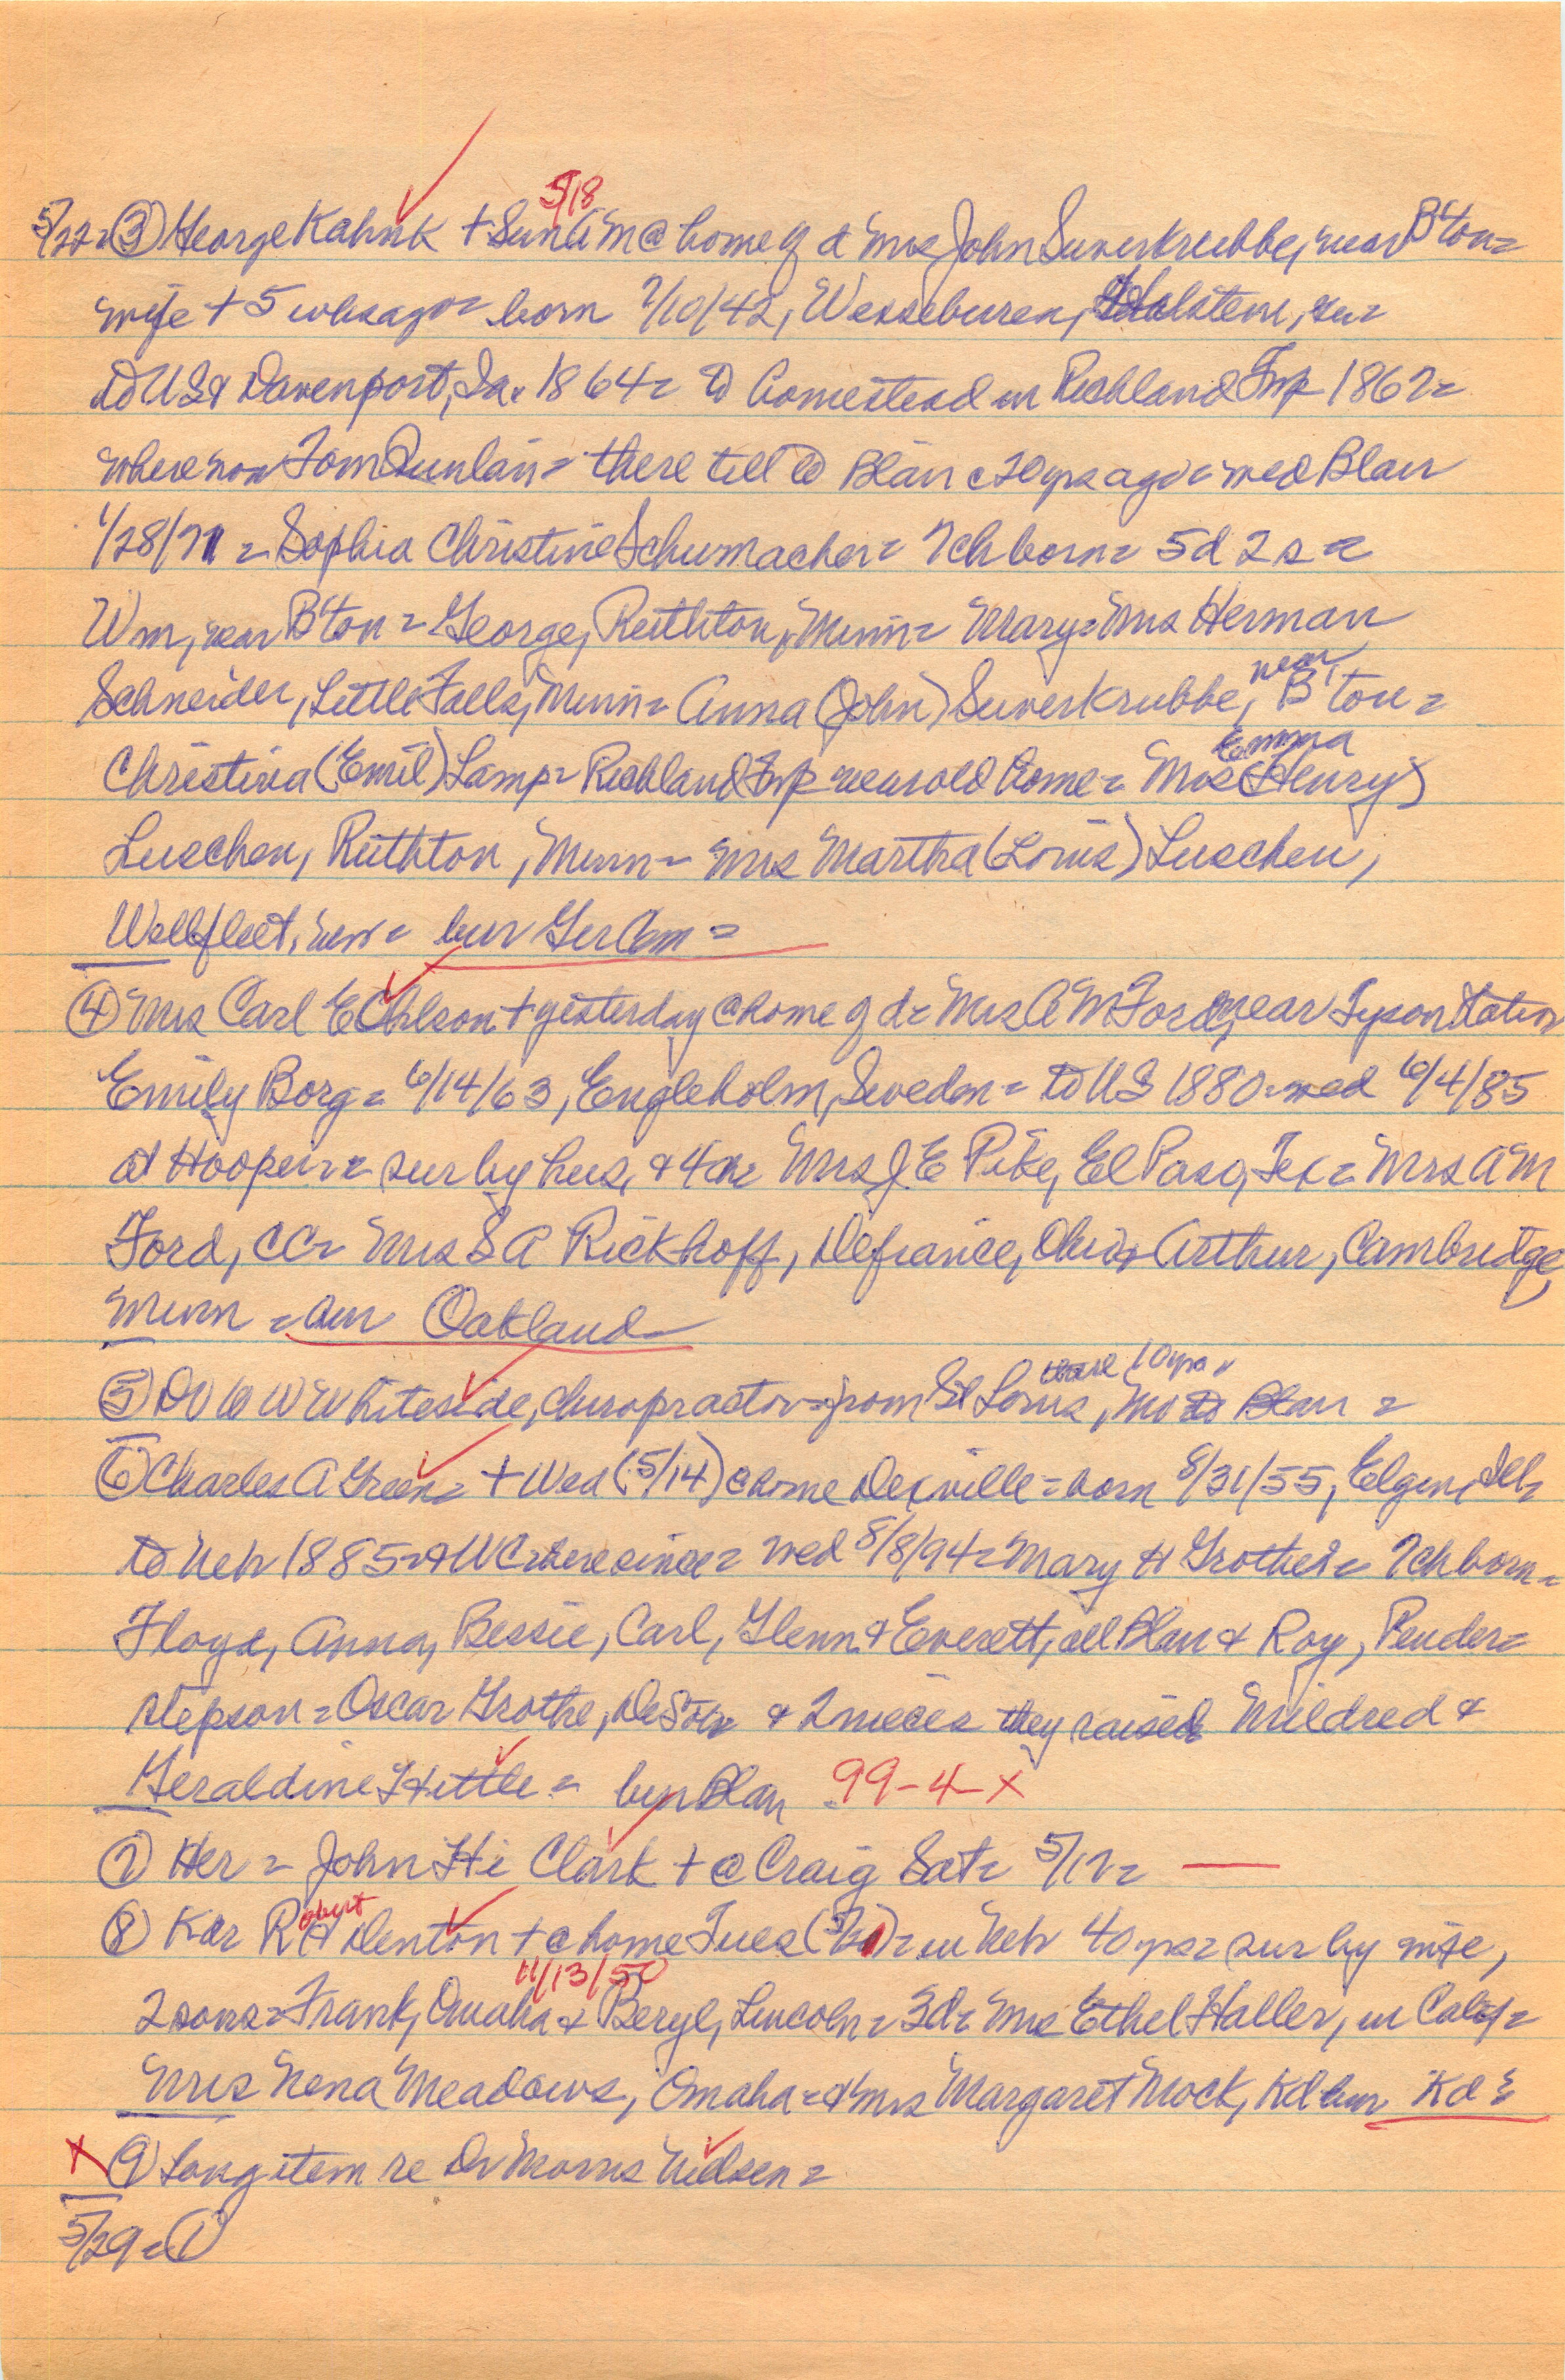 5/18
5/22= ③ George Kahnk + Sun AM @ home of d Mrs John Suverkrubbe, near B'ton=
wife + 5 wks ago= born 7/10/42, Wesselburen, Holstein, Ger=
to US & Davenport, Ia. 1864= to homestead in Richland Twp 1867=
where now Tom Dunlap= there till to Blair c 20 yrs ago= med Blair
1/28/71= Sophia Christine Schumacher= 7ch born= 5d 2s=
Wm, near B'ton= George, Ruthton, Minn= Mary= Mrs Herman
Schneider, Little Falls, Minn= Anna (John) Suverkrubbe, near B'ton=
Christina (Emil) Lamp= Richland Twp near old home= Mrs Emma (Henry)
Lueschen, Ruthton, Minn= Mrs Martha (Louis) Lueschen,
Wellfleet, Neb= bur Ger Cem=
④ Mrs Carl E Ohlson + yesterday @ home of d= Mrs A M Ford, near Tyson Station
Emily Borg= 6/14/63, Engleholm, Sweden= to US 1880= med 6/4/85
at Hooper= sur by hus, & 4 ch= Mrs J E Pike, El Paso, Tex= Mrs A M
Ford, CC= Mrs S A Rickhoff, Defiance, Ohio= Arthur, Cambridge,
Minn= bur Oakland
⑤ Dr W W Whiteside, chiropractor= from St Louis, Mo there 10 yrs, to Blair=
⑥ Charles A Green= + Wed (5/14) @ home Dexville= born 8/31/55, Elgin, Ill=
to Neb 1885= WC there since= med 8/8/94= Mary H Grothe= 7ch born=
Floyd, Anna, Bessie, Carl, Glenn & Everett, all Blair & Roy, Pender=
stepson= Oscar Grothe, DeSoto & 2 nieces they raised Mildred &
Geraldine Hittle= bur Blair 99-4-X
⑦ Her= John Hi Clark + @ Craig Sat= 5/17= —
⑧ Kdr Robert A Denton + @ home Tues (5/20)= in Neb 40 yrs= sur by wife,
11/13/50
2 sons= Frank, Omaha & Beryl, Lincoln= 3d= Mrs Ethel Haller, in Calif=
Mrs Nena Meadows, Omaha= & Mrs Margaret Mock, Kd bur Kd=
X ⑨ Long item re Dr Morris Nielsen=
5/29= ①